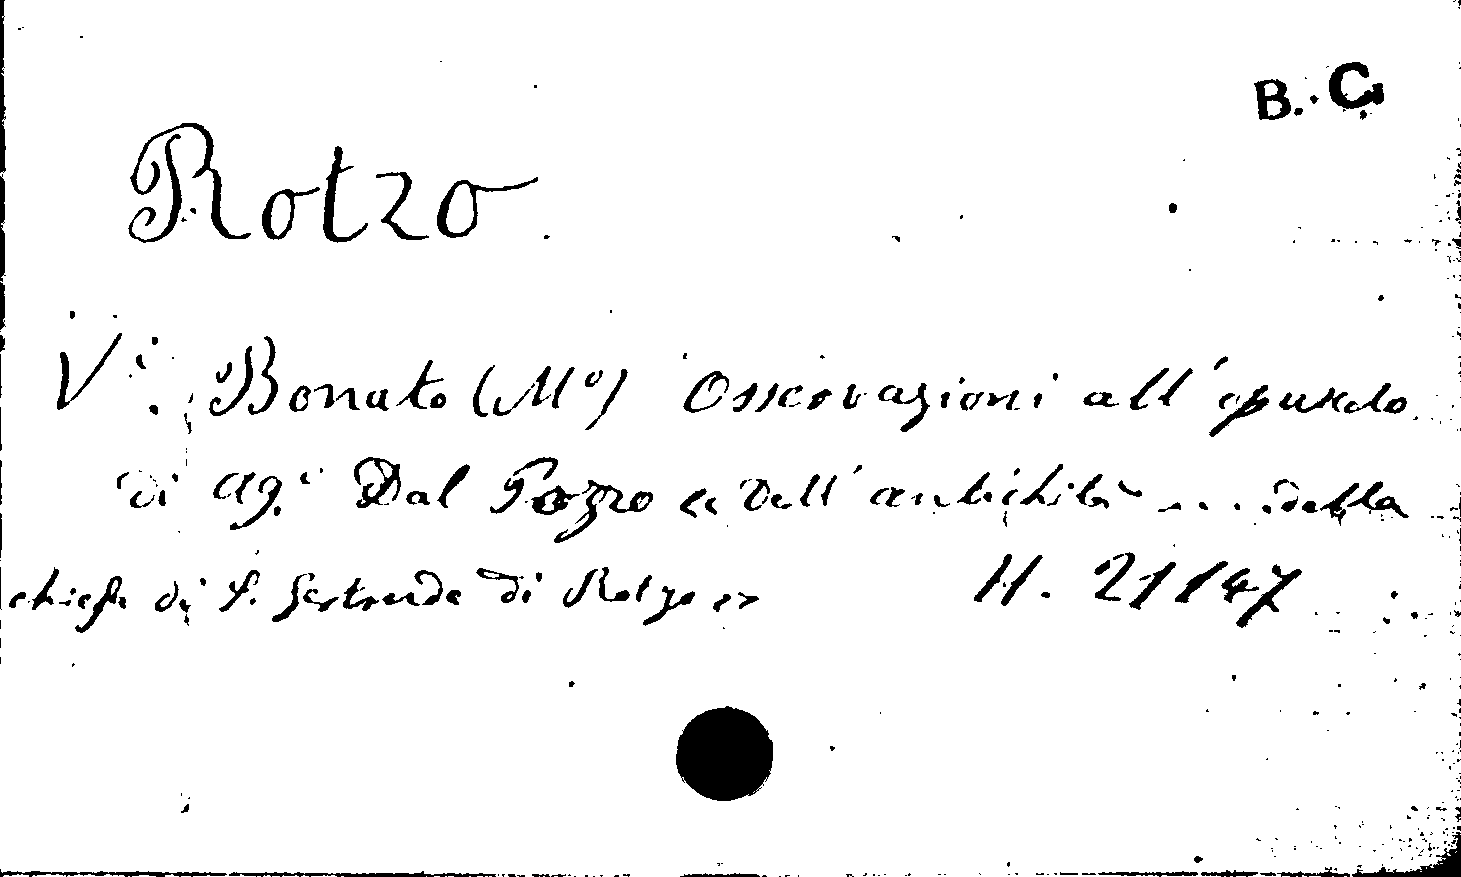 B. C.
Rotzo
V.i Bonato (Mo) Osservazioni all'opuscolo
di Ag.i Dal Pozzo « Dell'antichità .... della
chiesa di S. Gertrude di Rotzo »
H. 21147